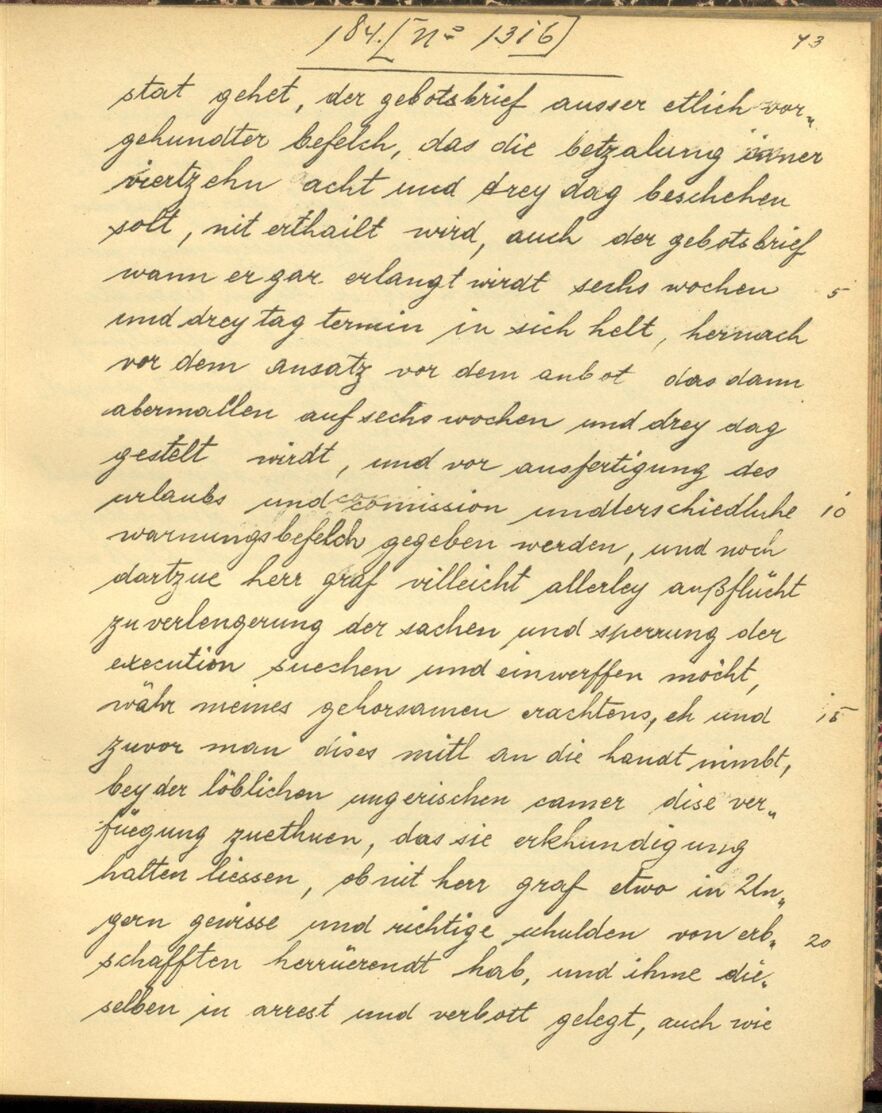 184. [nº 1316]
73
stat gehet, der gebotsbrief ausser etlich vor„
gehundter befelch, das die betzalung inner
viertzehn acht und drey dag beschehen
solt, nit erthailt wird, auch der gebotsbrief
wann er gar erlangt wirdt sechs wochen 5
und drey tag termin in sich helt, hernach
vor dem ansatz vor dem anbot das dann
abermallen auf sechs wochen und drey dag
gestelt wirdt, und vor ausfertigung des
urlaubs und comission undterschiedliche 10
warnungsbefelch gegeben werden, und noch
dartzue herr graf villeicht allerley außflücht
zu verlengerung der sachen und sperrung der
execution suechen und einwerffen möcht,
währ meines gehorsamen erachtens, eh und 15
zuvor man dises mitl an die handt nimbt,
bey der löblichen ungerischen camer dise ver„
füegung zuethuen, das sie erkhundigung
halten liessen, ob nit herr graf etwo in Un„
gern gewisse und richtige schulden von erb„ 20
schafften herrüerendt hab, und ihme die„
selben in arrest und verbott gelegt, auch wie